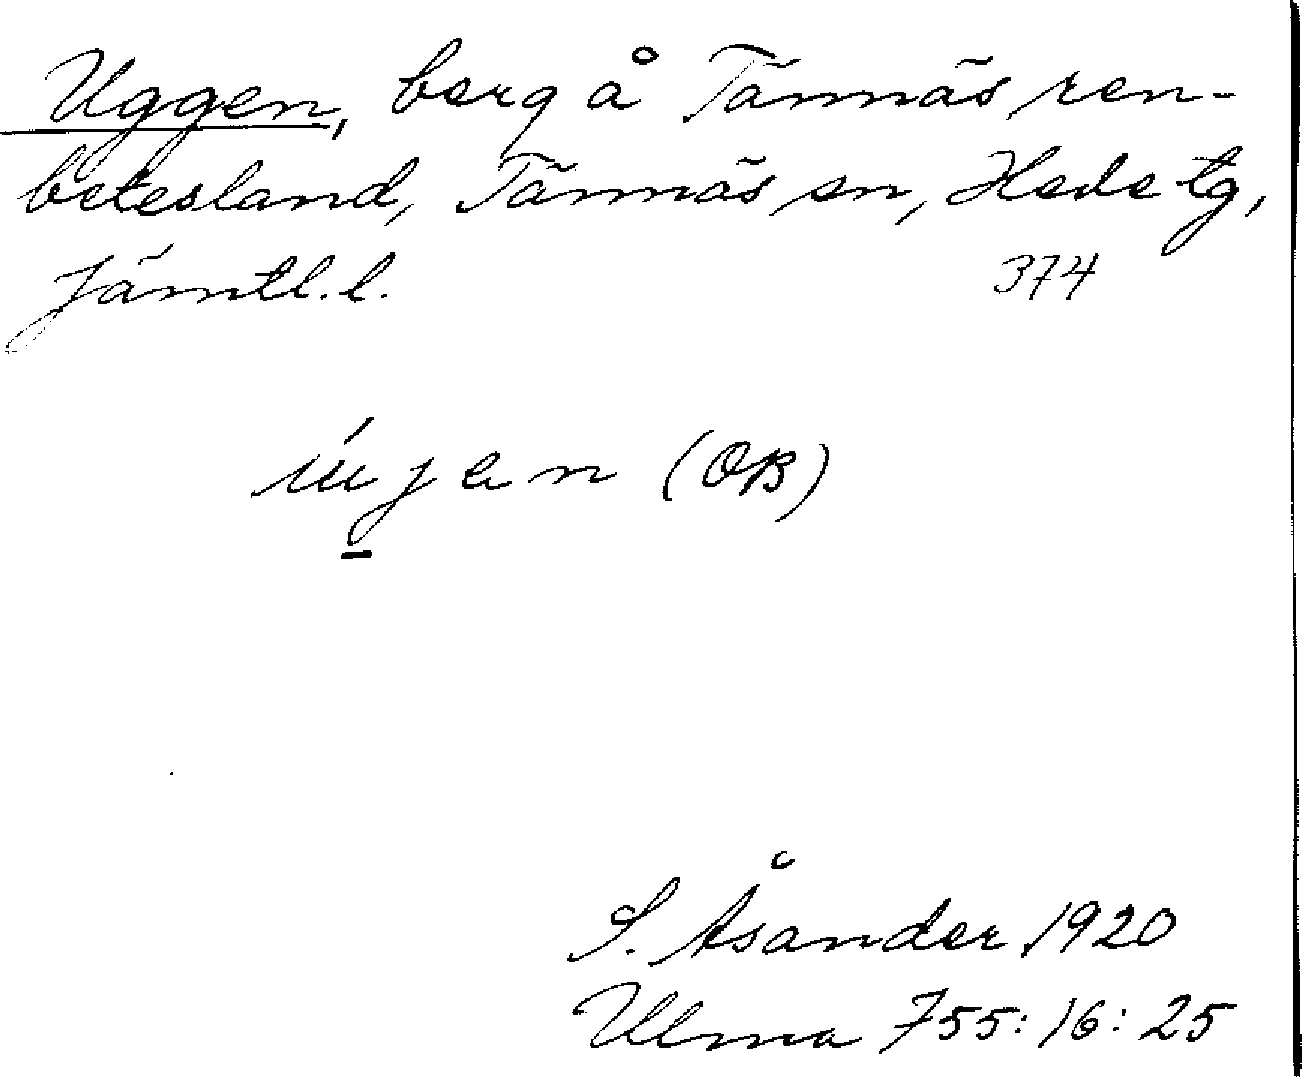 Uggen, berg å Tännäs ren-
betesland, Tännäs sn, Hede tg,
Jämtl. l.
374
újen (OB)
S. Åsander 1920
Ulma 755:16:25